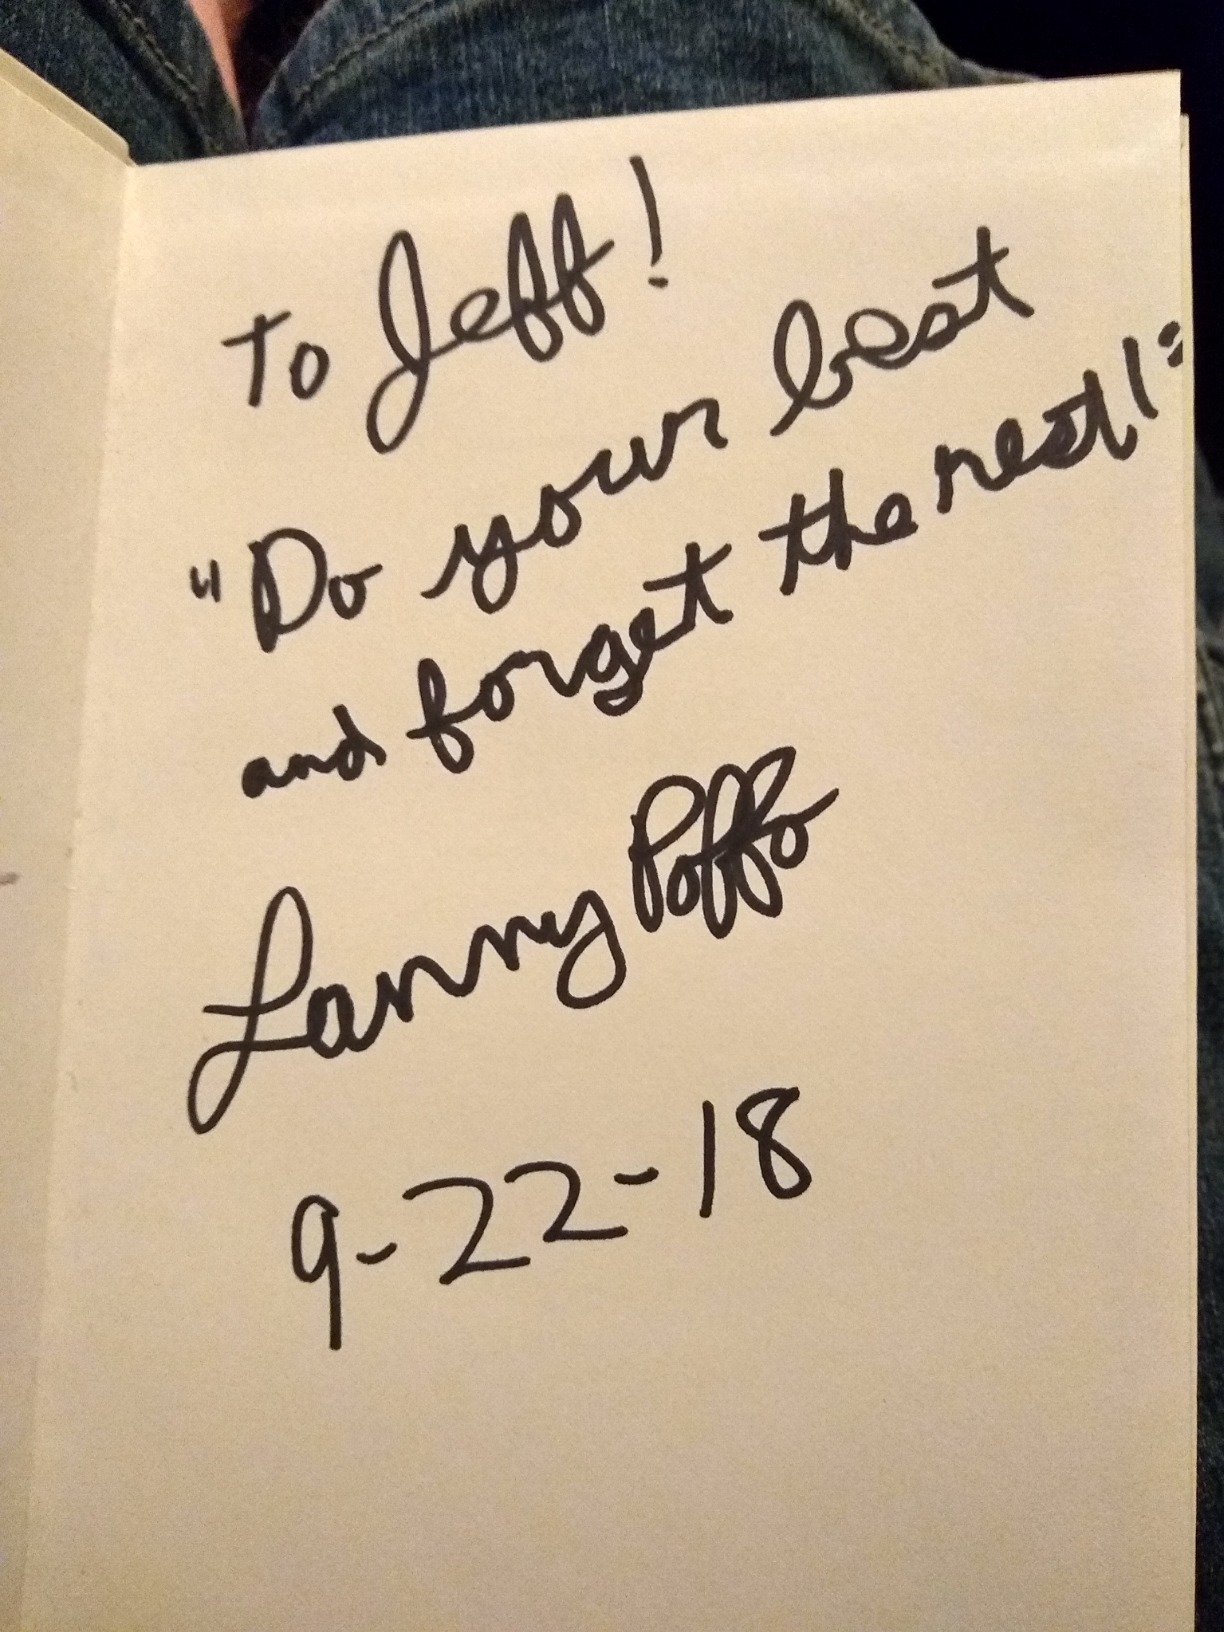 To Jeff!
"Do your best
and forget the rest!"
Lanny Poffo
9-22-18